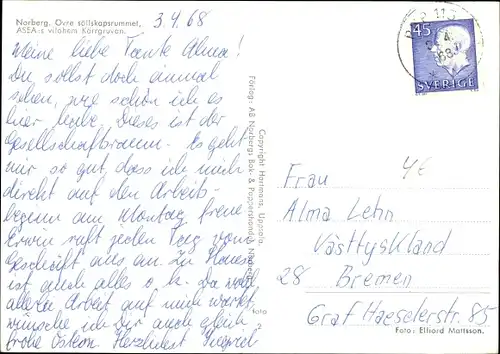 Norberg. Övre sällskapsrummet,
ASEA:s vilohem Kärrgruvan.
3.4.68
Meine liebe Tante Alma!
Du sollst doch einmal
sehen, wie schön ich es
hier habe. Dieses ist der
Gesellschaftsraum. Es geht
mir so gut, dass ich mich
direkt auf den Arbeits-
beginn am Montag freue.
Erwin ruft jeden Tag vom
Geschäft aus an. Zu Hause
ist auch alles o.k. Da wohl
allerh. Arbeit auf mich wartet,
wünsche ich Dir auch gleich
frohe Ostern. Herzlichst Ingrid
Förlag: AB Norbergs Bok- & Pappershandel
Copyright Hartmans, Uppsala.
foto
45
SVERIGE
4€
Frau
Alma Lehn
Västtyskland
28 Bremen
Graf Haeselerstr. 85
Foto: Elhard Mattsson.